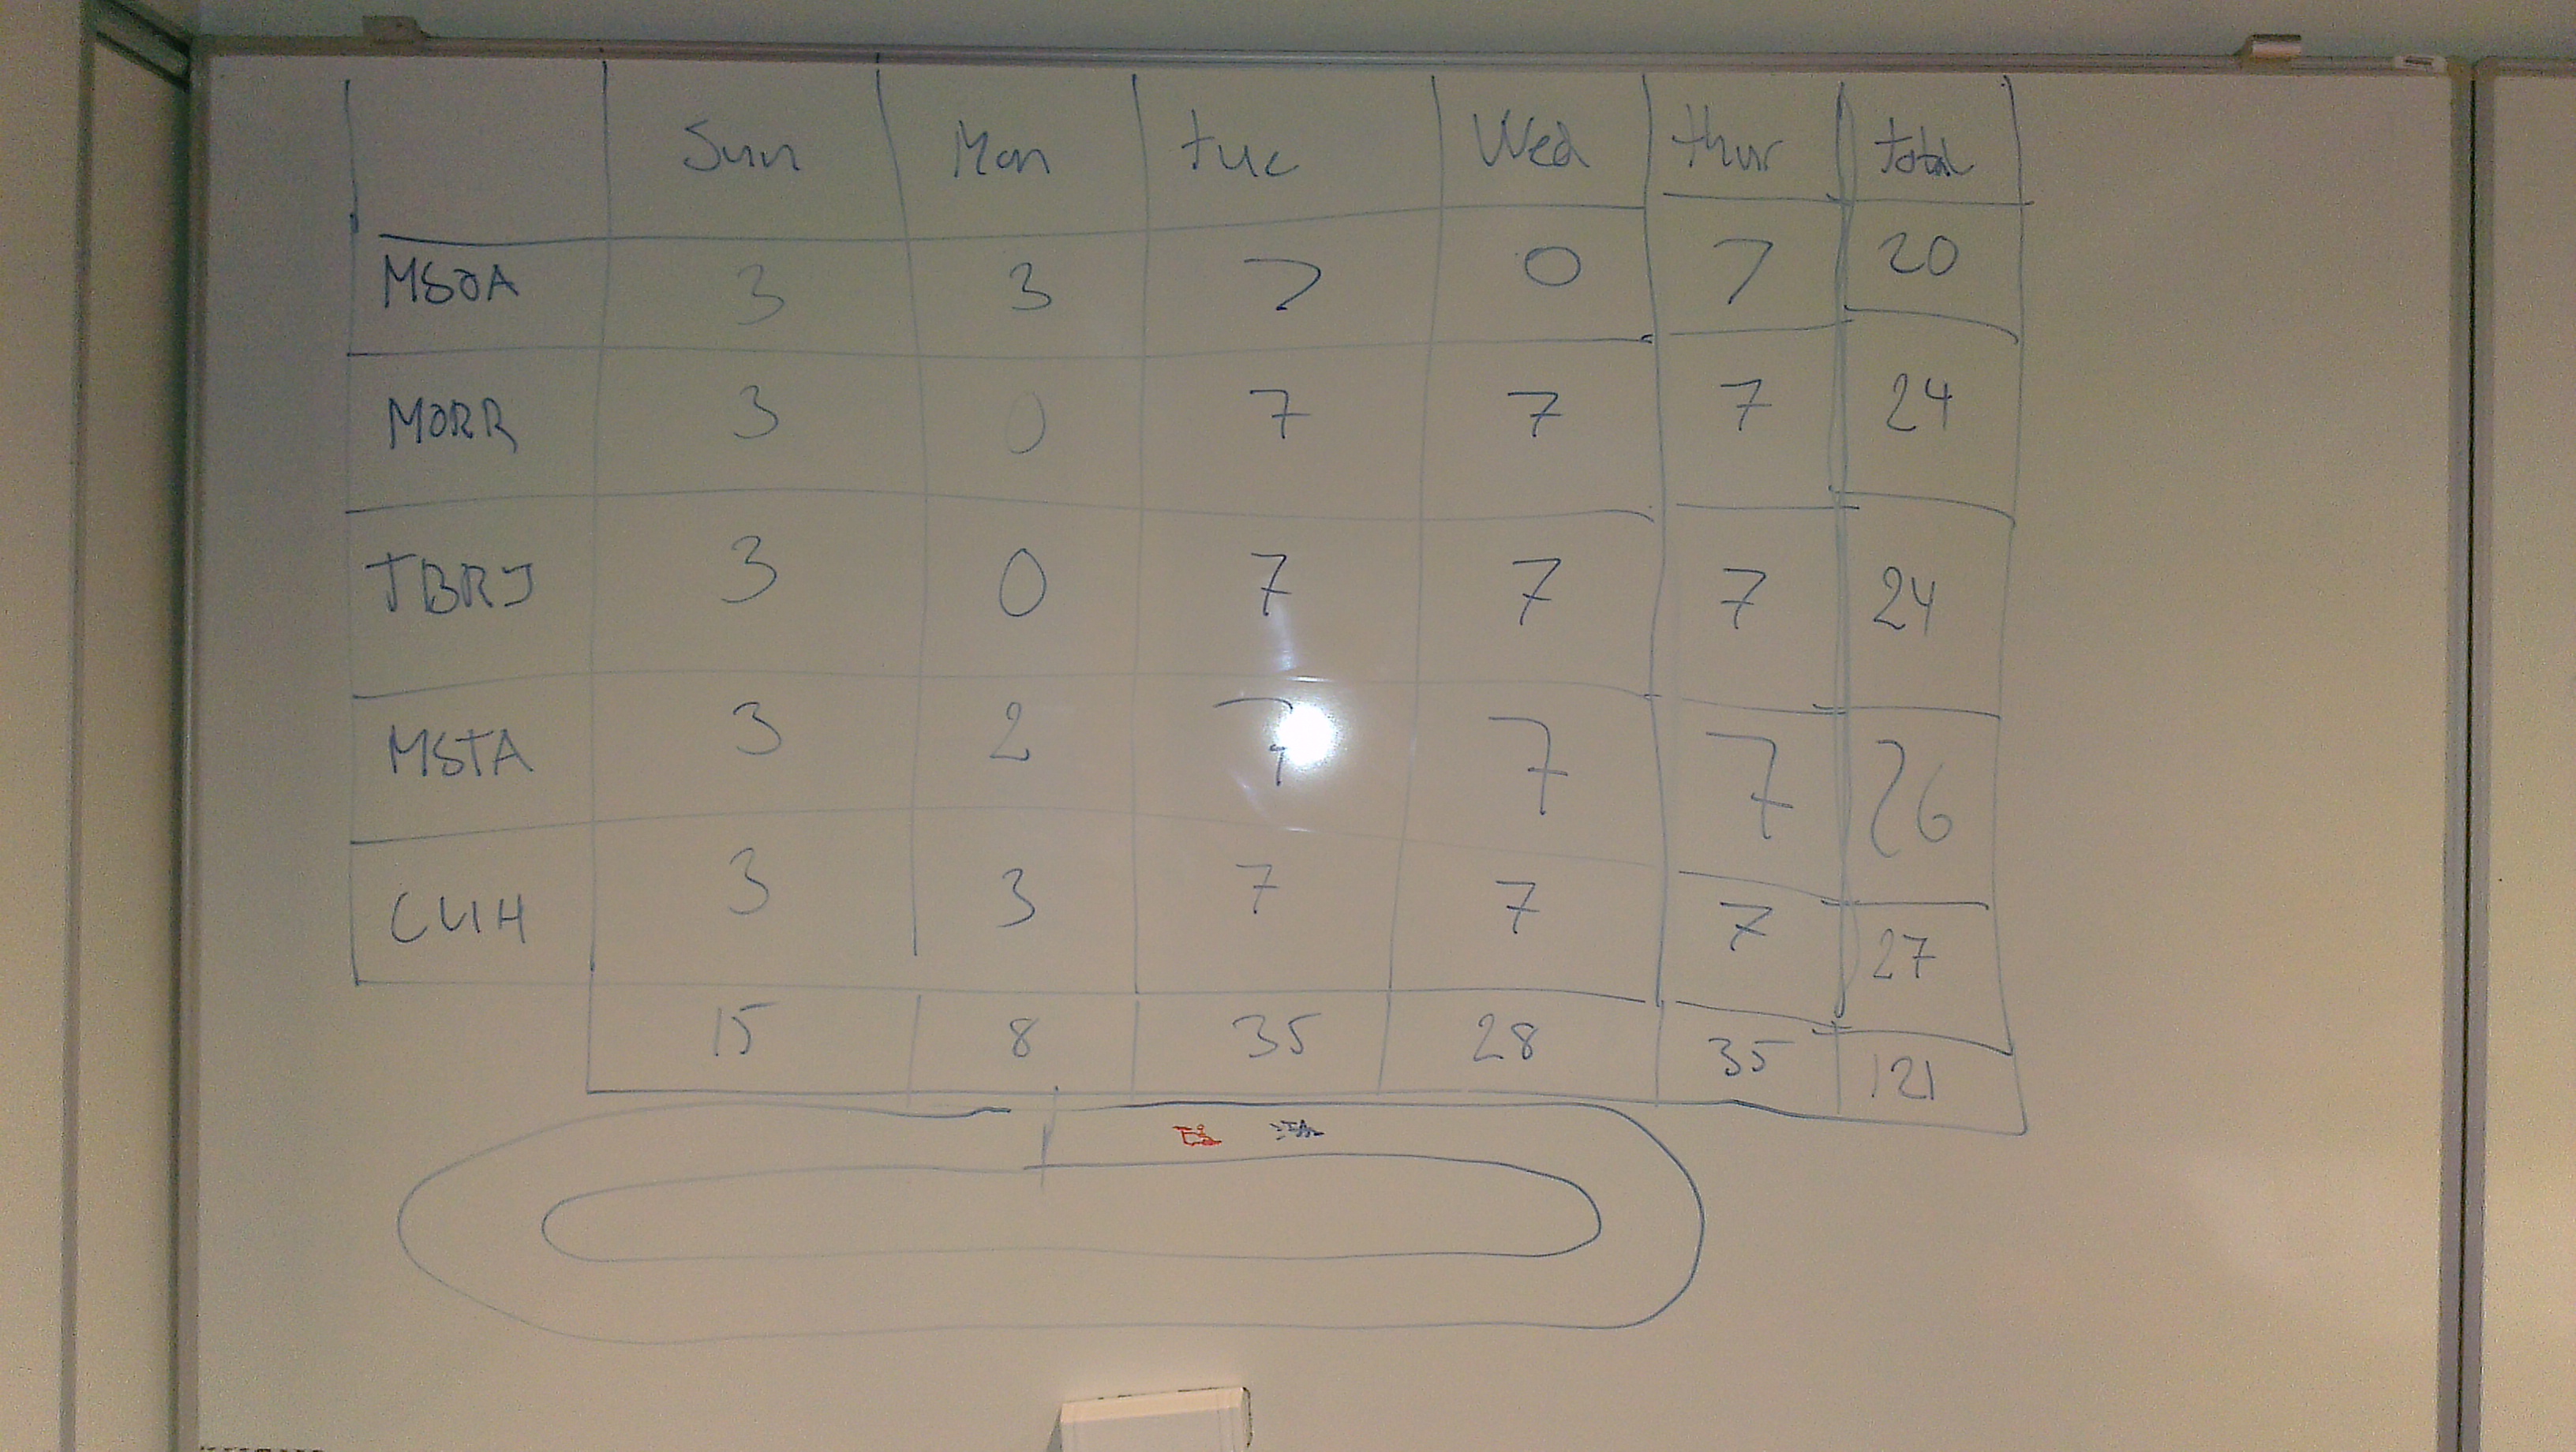 Sun Mon tue Wed thur total
MSOA 3 3 7 0 7 20
MORR 3 0 7 7 7 24
TBRJ 3 0 7 7 7 24
MSTA 3 2 7 7 7 26
CLIH 3 3 7 7 7 27
15 8 35 28 35 121